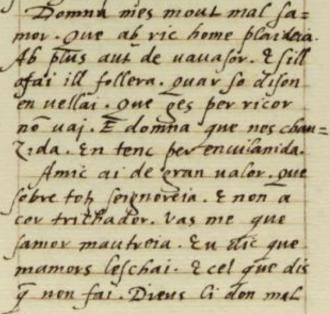 Domna mes mout mal sa=
mor. Que ab ric home plaideia.
Ab plus aut de vavasor. E sill
o fai ill follera. Quar so dison
en vellai. Que ges per ricor
nō vai. E domna que nes chau=
zida. En tenc per envilanida.
Amic ai de gran valor. que
sobre totz seignoreia. E non a
cor trichador. Vas me que
samor mautreia. Eu dic que
mamors leschai. E cel que dis
q̄ non fai. Dieus li don mal